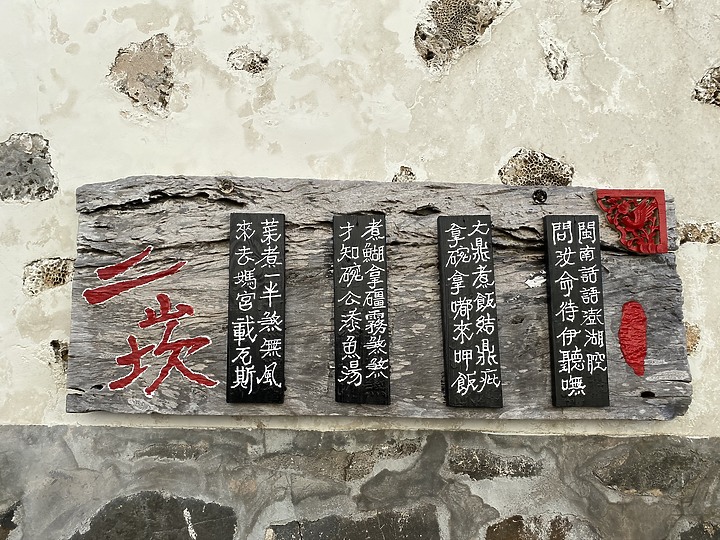 閩南話語澎湖腔
問汝命侍伊聽嘸
大鼎煮飯結鼎疕
拿碗拿嘟來呷飯
煮拿礓霧煞煞
才知碗公魚湯
菜煮一半煞無風
來去媽宮載瓦斯
二崁